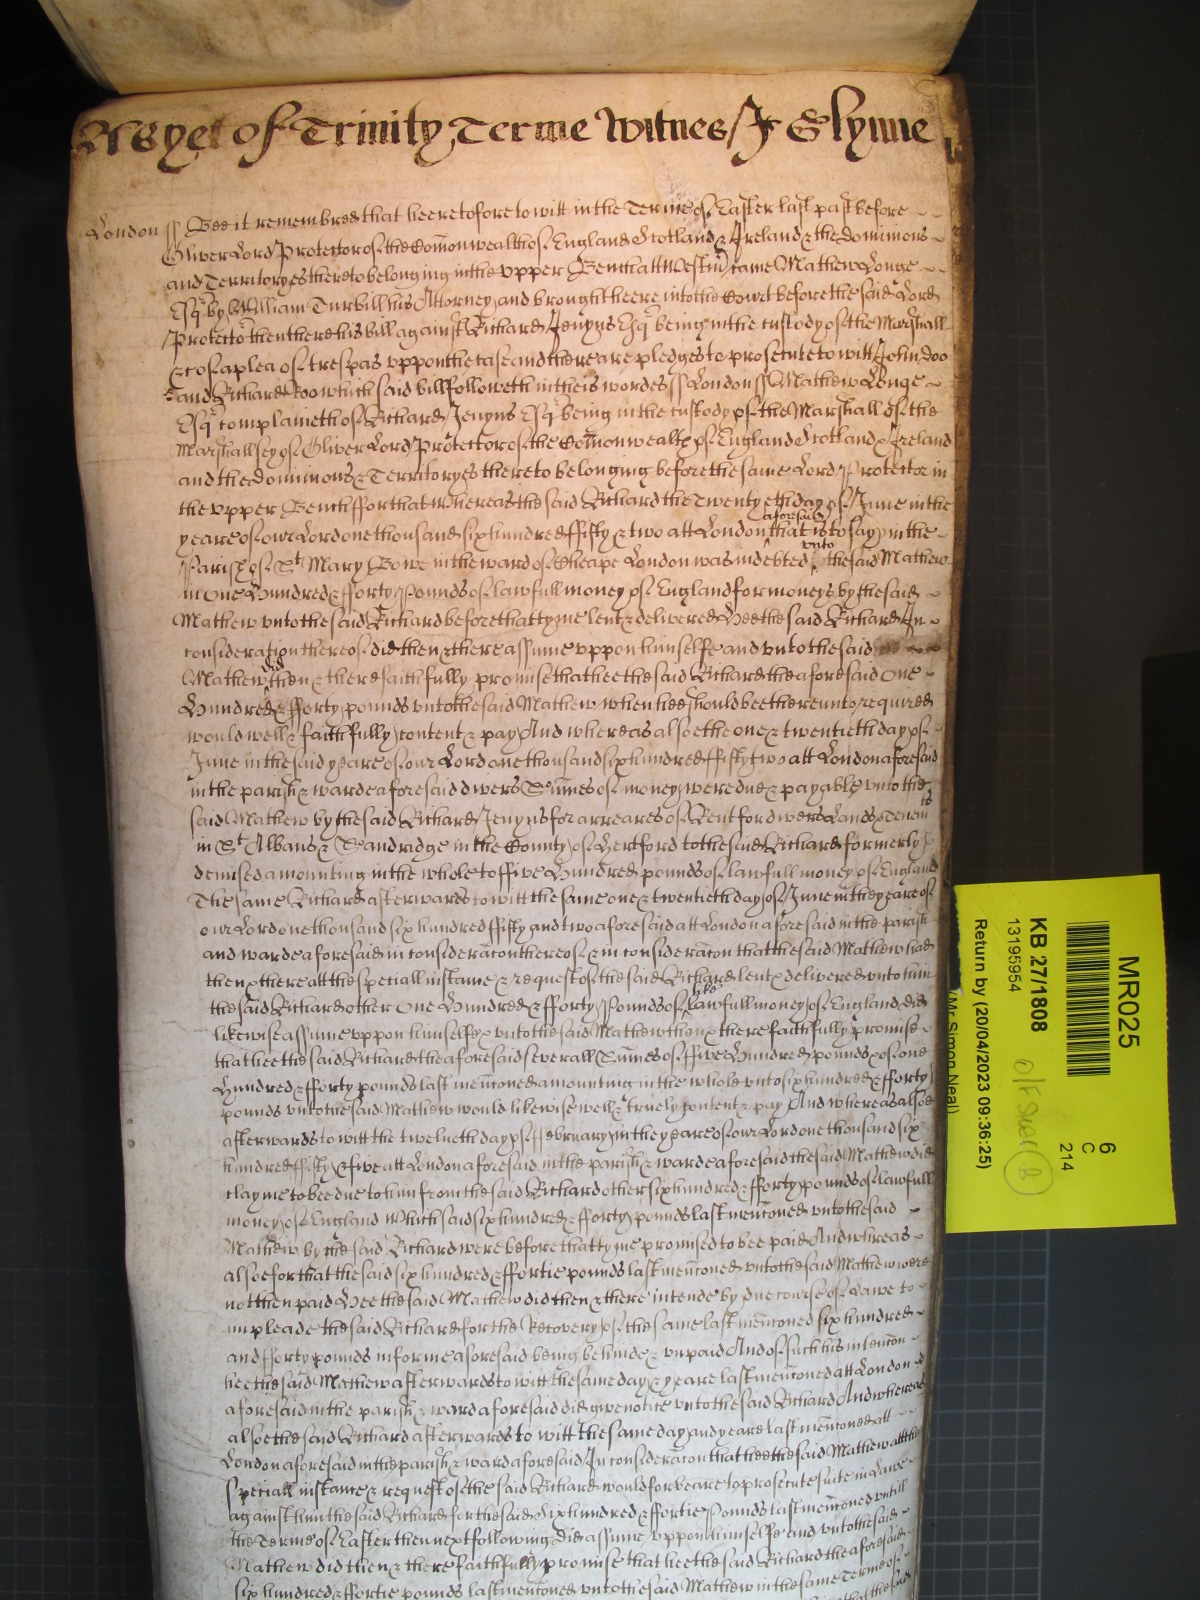 As yet of Trinity Terme Witnes J Glynne
London ss Bee it remembred that heeretofore to witt in the Terme of Easter last past before
Oliver Lord Protector of the Comonwealth of England Scotland & Ireland & the dominions
and Territoryes thereto belonging in the vpper Bench att Westm came Mathew Longe
Esqr by William Turbill his Attorney and brought heere into the Court before the said Lord
Protector then there his bill against Richard Jenyns Esqr being in the custody of the Marshall
&c of a plea of trespas vppon the case and there are pledges to prosecute to witt John doo
and Richard Roo which said bill followeth in theis wordes ss London ss Mathew Longe
Esqr complaineth of Richard Jenyns Esqr being in the custody of the Marshall of the
Marshallsey of Oliver Lord Protector of the Comonwealth of England Scotland & Ireland
and the dominions & Territoryes thereto belonging before the same Lord Protector in
the vpper Bench ffor that Whereas the said Richard the Twentyeth day of June in the
yeare of our Lord one thousand six hundred ffifty & two att London aforesaid that is to say in the
Parish of St Mary Bowe in the ward of Cheape London was indebted vnto the said Mathew
in One Hundred & fforty Pounds of lawfull money of England for moneys by the said
Mathew vnto the said Richard before that tyme lent & delivered Hee the said Richard In
consideration thereof did then & there assume vppon himselfe and vnto the said
Mathew did then & there faithfully promise that hee the said Richard the aforesaid One
Hundred & fforty pounds vnto the said Mathew when hee should bee therevnto required
would well & faithfully content & pay And whereas alsoe the one & twentieth day of
June in the said yeare of our Lord one thousand six hundred ffifty two att London aforesaid
in the parish & warde aforesaid divers Sumes of money were due & payable vnto the
said Mathew by the said Richard Jenyns for arreares of Rent for divers Lands & Tenemts
in St Albans & Sandridge in the County of Hertford to the said Richard formerly
demised amounting in the whole to ffive Hundred pounds of lawfull money of England
The same Richard afterwards to witt the same one & twentieth day of June in the yeare of
our Lord one thousand six hundred ffifty and two aforesaid att London aforesaid in the parish
and warde aforesaid in consideracon thereof & in consideracon that the said Mathew had
then & there att the speciall instance & request of the said Richard lent & delivered vnto him
the said Richard other One Hundred & fforty Pounds of like lawfull money of England did
likewise assume vppon himselfe & vnto the said Mathew then & there faithfully promise
that hee the said Richard the aforesaid severall Sumes of ffive Hundred pounds & of one
Hundred & fforty pounds last mencioned amounting in the whole vnto six hundred & fforty
pounds vnto the said Mathew would likewise well & truely content & pay And whereas alsoe
afterwards to witt the twelueth day of ffebruary in the yeare of our Lord one thousand six
hundred ffifty & five att London aforesaid in the parish & warde aforesaid the said Mathew did
clayme to bee due to him from the said Richard other six hundred & fforty pounds of lawfull
money of England Which said six hundred & fforty pounds last mencioned vnto the said
Mathew by the said Richard were before that tyme promised to bee paid And whereas
alsoe for that the said six hundred & ffortie pounds last mencioned vnto the said Mathew were
not then paid Hee the said Mathew did then & there intende by due course of Lawe to
impleade the said Richard for the Recovery of the same last mencioned six hundred
and fforty pounds in forme aforesaid being behinde & vnpaid And of such his intencon
hee the said Mathew afterwards to witt the same day & yeare last mencioned att London
aforesaid in the parish & ward aforesaid did give notice vnto the said Richard And whereas
alsoe the said Richard afterwards to witt the same day and yeare last mencioned att
London aforesaid in the parish & ward aforesaid In consideracon that hee the said Mathew att the
speciall instance & request of the said Richard would forbeare to prosecute suite in Lawe
against him the said Richard for the said Six hundred & ffortie Pounds last mencioned vntill
the Terme of Easter then next following did assume vppon himselfe and vnto the said
Mathew did then & there faithfully promise that hee the said Richard the aforesaid
six hundred & ffortie pounds last mencioned vnto the said Mathew in the same Terme of
MR025
6
C
214
KB 27/1808
13195954
Return by (20/04/2023 09:36:25)
(Mr Simon Neal)